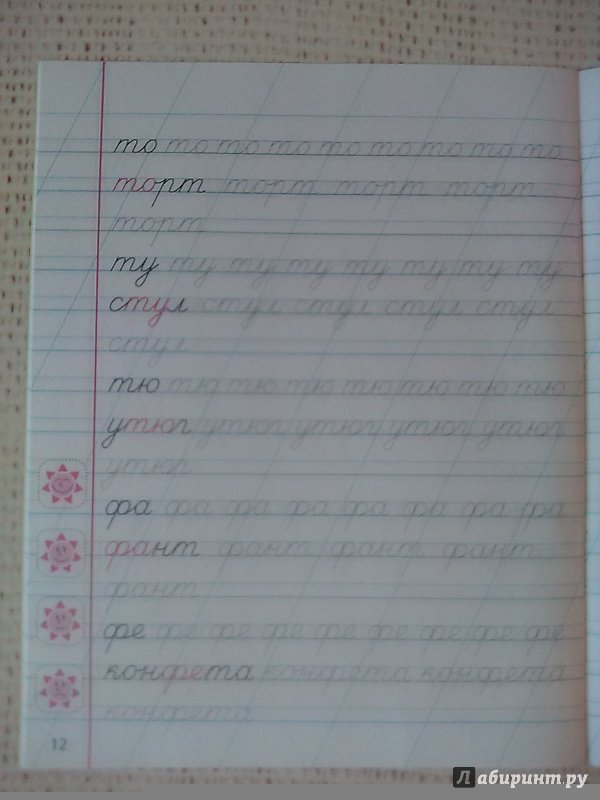 то то то то то то то то то
торт торт торт торт
торт
ту ту ту ту ту ту ту ту
стул стул стул стул стул
стул
тю тю тю тю тю тю тю тю
утюг утюг утюг утюг утюг
утюг
фа фа фа фа фа фа фа фа
фант фант фант фант
фант
фе фе фе фе фе фе фе фе фе
конфета конфета конфета
конфета
12
Лабиринт.ру